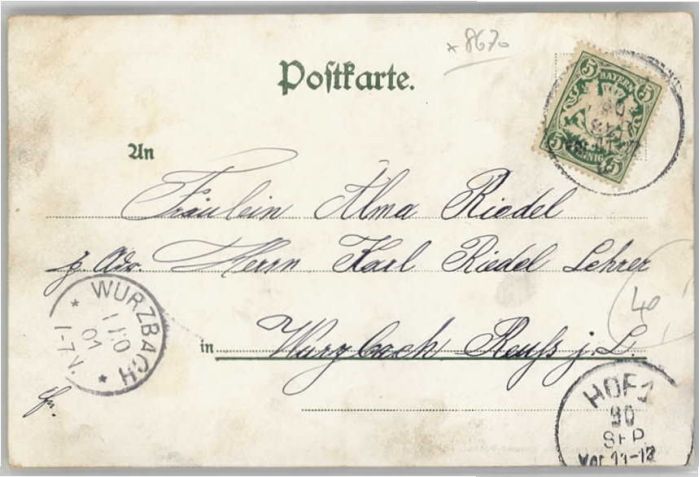 * 8670
Postkarte.
5 BAYERN 5
An
Fräulein Alma Riedel
z. Adr. Herrn Karl Riedel Lehrer
40
in Wurzbach Reuß j. L.
* WURZBACH *
1 10
01
1-7 V.
fr.
HOF 1
30
SEP
Vor 11-12